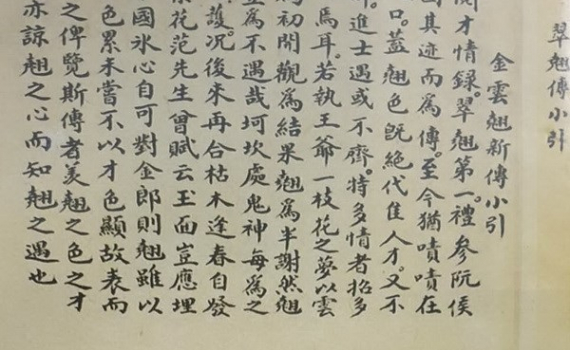 翠翹傳小引
金雲翹新傳小引
才情録。翠翹第一。禮參阮侯
因其迹而爲傳。至今猶嘖嘖在
口。蓋翹色旣絶代隹人才。又不
進士遇或不齊。特多情者招多
焉耳。若執王爺一枝花之夢以雲
初開觀爲結果翹爲半謝然翹
爲不遇哉坷坎處鬼神每爲之
護。况後來再合枯木逢春自發
花范先生曾賦云玉面豈應埋
國氷心自可對金郎則翹雖以
色累未嘗不以才色顯故表而
之俾覽斯傳者羡翹之色之才
亦諒翹之心而知翹之遇也